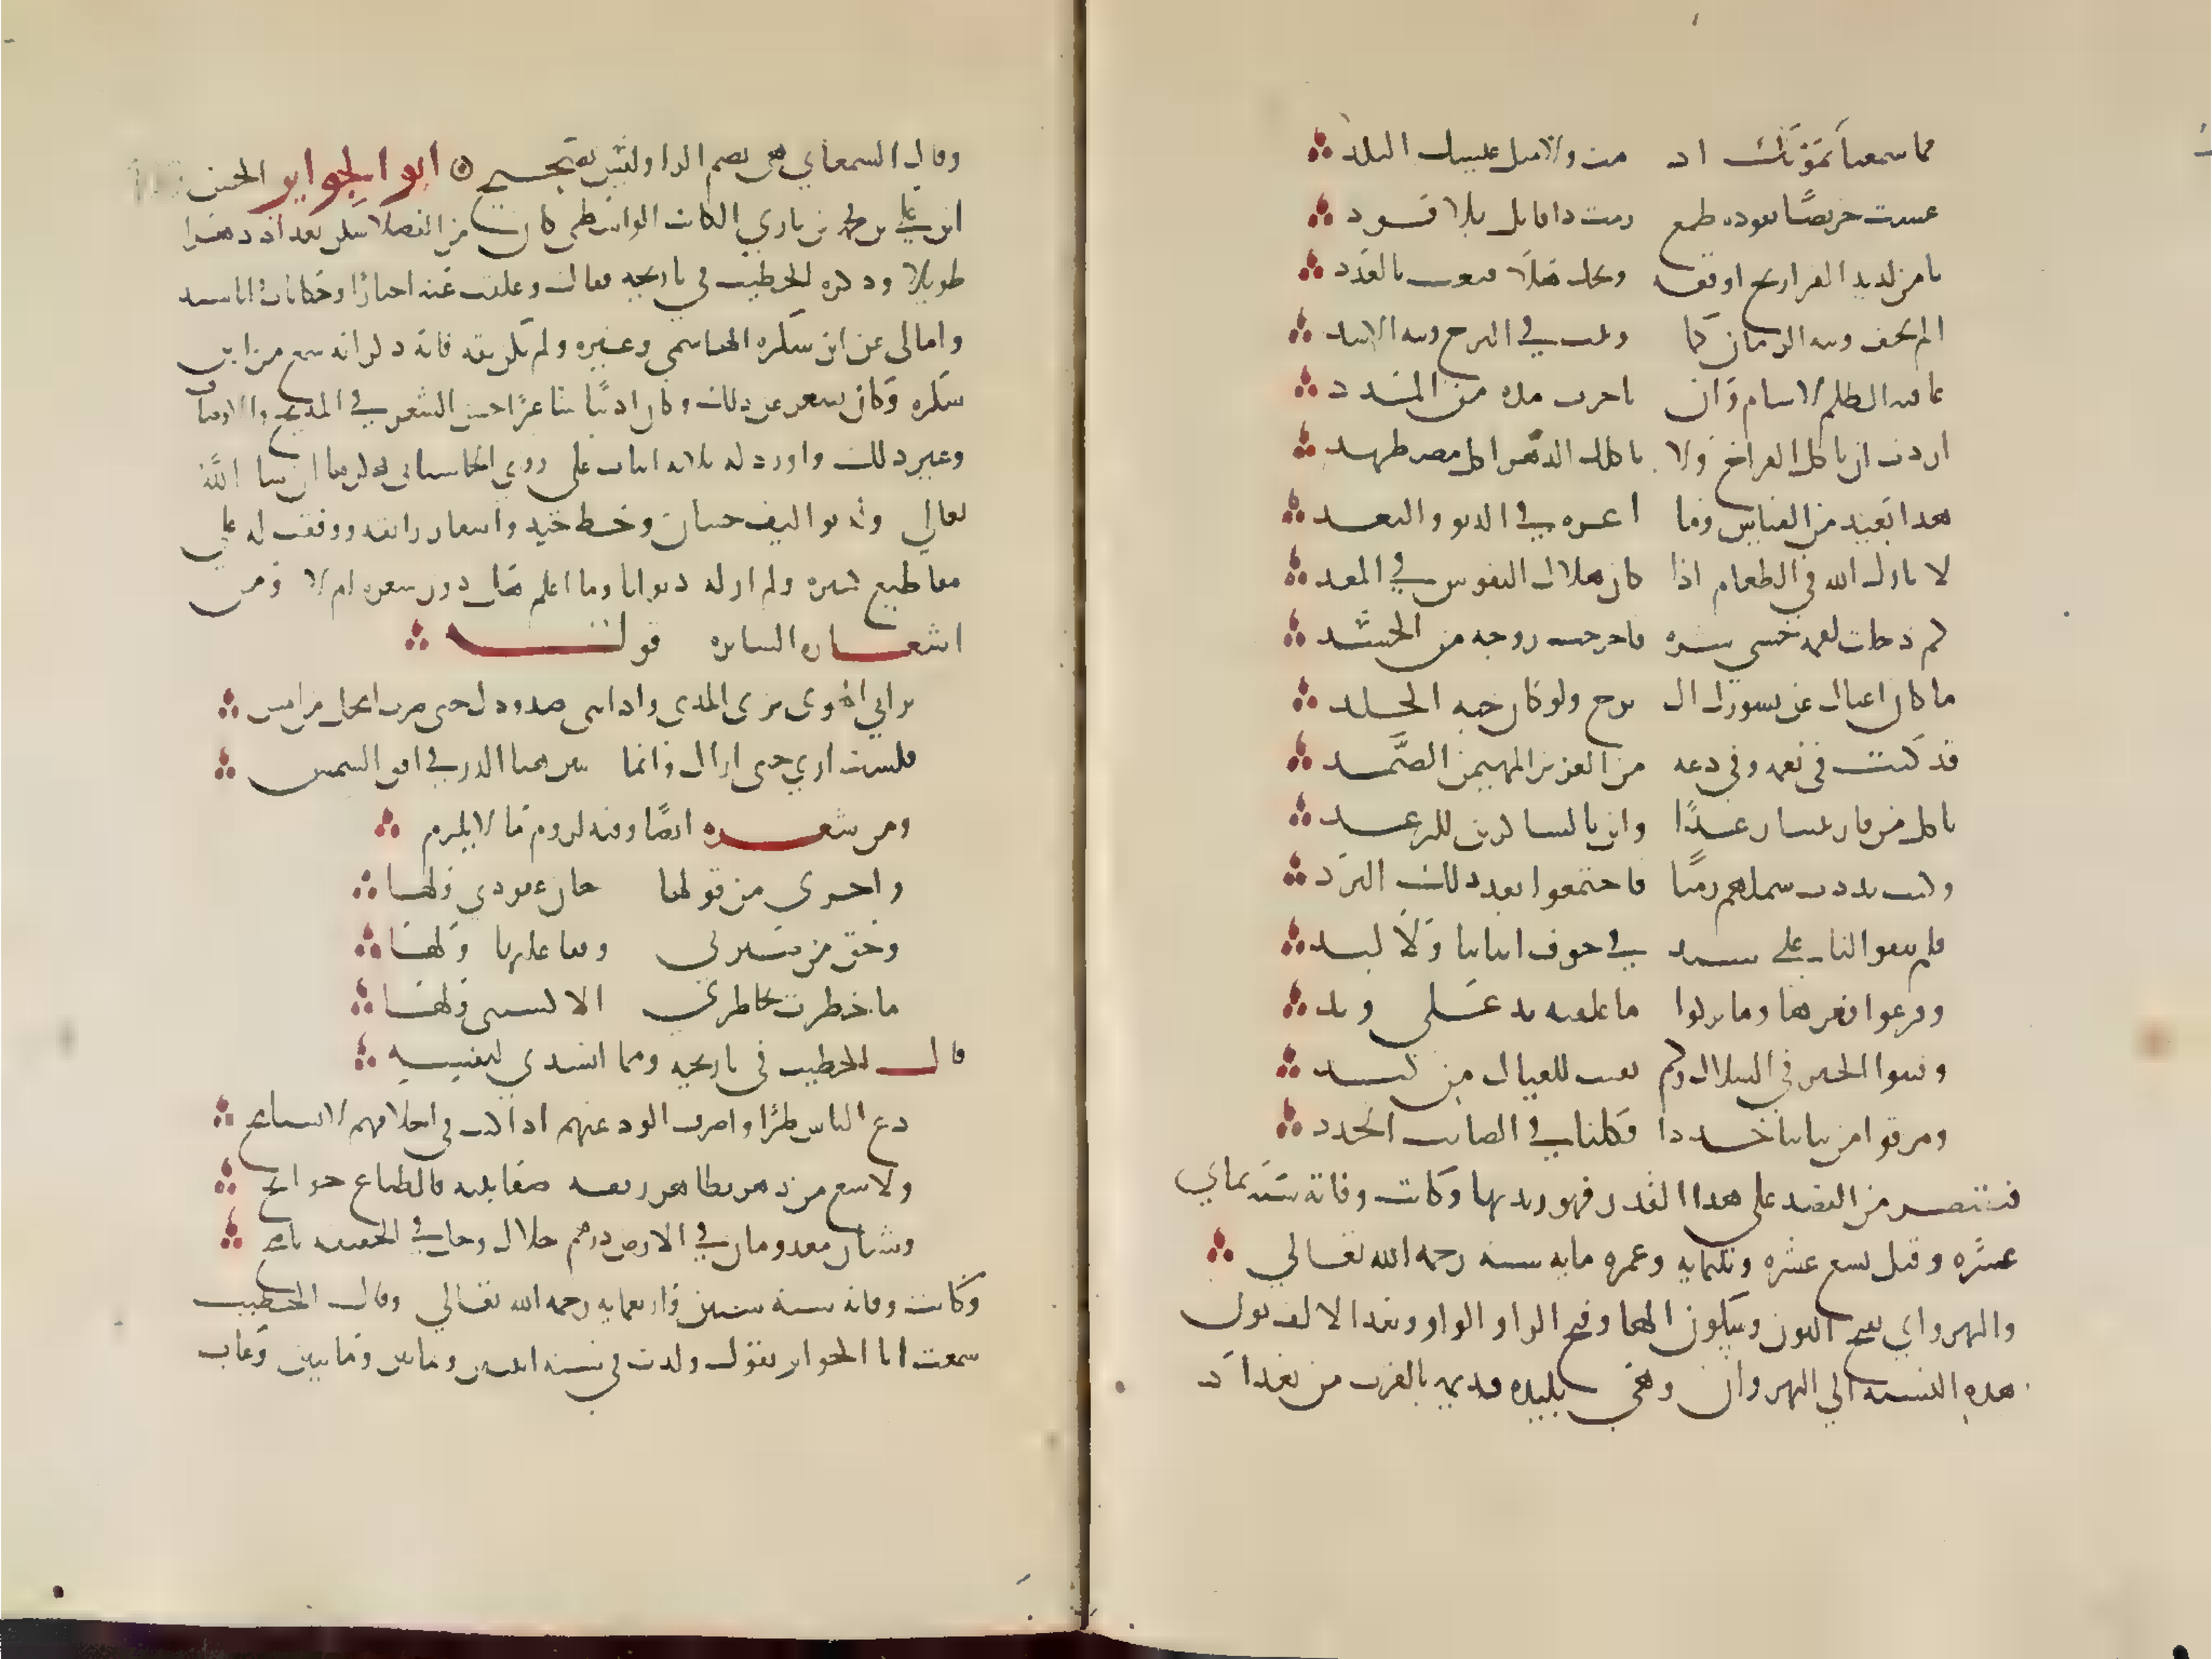 فما سمعنا بموتك اذ مت ولا مثل عيشك النكد
عشت حريصا يقوده طمع ومت ذا قاتل بلا قود
يا من لذيذ الفراخ اوقعه ويحك هلا قنعت بالغدد
الم تخف وثبة الزمان كما وثبت في البرج وثبة الاسد
عاقبة الظلم لا تنام وان تاخرت مدة من المدد
اردت ان تاكل الفراخ ولا ياكلك الدهر اكل مضطهد
هذا بعيد من القياس وما اعزه في الدنو والبعد
لا بارك الله في الطعام اذا كان هلاك النفوس في المعد
كم دخلت لقمة حشى شره فاخرجت روحه من الجسد
ما كان اغناك عن تسورك ال برج ولو كان جنة الخلد
قد كنت في نعمة وفي دعة من العزيز المهيمن الصمد
تاكل من فار بيتنا رغدا واين بالشاكرين للرغد
وكنت بددت شملهم زمنا فاجتمعوا بعد ذلك البرد
فلم يبقوا لنا على سبد في جوف ابياتنا ولا لبد
وفرغوا قعرها وما تركوا ما علقته يد على وتد
وفتتوا الخبز في السلال وكم تفتتت للعيال من كبد
ومزقوا من ثيابنا جددا فكلنا في المصائب الجدد
فنقتصر من القصيدة على هذا القدر فهو زبدتها وكانت وفاته سنة ثماني
عشره وقيل تسع عشره وثلثمايه وعمره مايه سنه رحمه الله تعالي
والنهرواني بفتح النون وسكون الها وفتح الرا و الواو وبعد الالف نون
هذه النسبه الي النهروان وهي بليده قديمه بالقرب من بغداد
وقال السمعاني هي بضم الرا وليس بصحيح ابو الجوايز الحسن
ابن علي بن محمد بن باري الكاتب الواسطي كان من الفضلا سكن بغداد دهرا
طويلا وذكره الخطيب في تاريخه فقال وعلقت عنه اخبارا وحكايات واناشيد
وامالي عن ابن سكره الهاشمي وغيره ولم يكن ثقه فانه ذكر انه سمع من ابن
سكره وكان يصغر عن ذلك وكان اديبا شاعرا حسن الشعر في المديح والاوصاف
وغير ذلك واورد له ثلاثه ابيات على روي الكاف ساتي ذكرها ان شا الله
تعالي وله تواليف حسان وخط جيد واشعار رائقه ووقفت له على
مقاطيع كثيره ولم ار له ديوانا وما اعلم هل دون شعره ام لا ومن
اشعاره السائره قوله
براني الهوى بري المدى واذابني صدودك حتى صرت انحل من امس
فلست ارى حتى اراك وانما يبين هبا الذر في افق الشمس
ومن شعره ايضا وفيه لزوم ما لا يلزم
واحربى من قولها خان عهودي ولها
وحق من صيرني وقفا عليها ولها
ما خطرت بخاطري الا كستني ولها
قال الخطيب في تاريخه ومما انشدني لنفسه
دع الناس طرا واصرف الود عنهم اذا كنت في اخلاقهم لا تسامح
ولا تبغ من دهر تظاهر رنقه صفا بنيه فالطباع جوامح
وشيئان معدومان في الارض درهم حلال وخل في الحقيقه ناصح
وكانت وفاته سنة ستين واربعمايه رحمه الله تعالي وقال الخطيب
سمعت ابا الجوايز يقول ولدت في سنه اثنتين وخمسين وثلثمايه وغاب